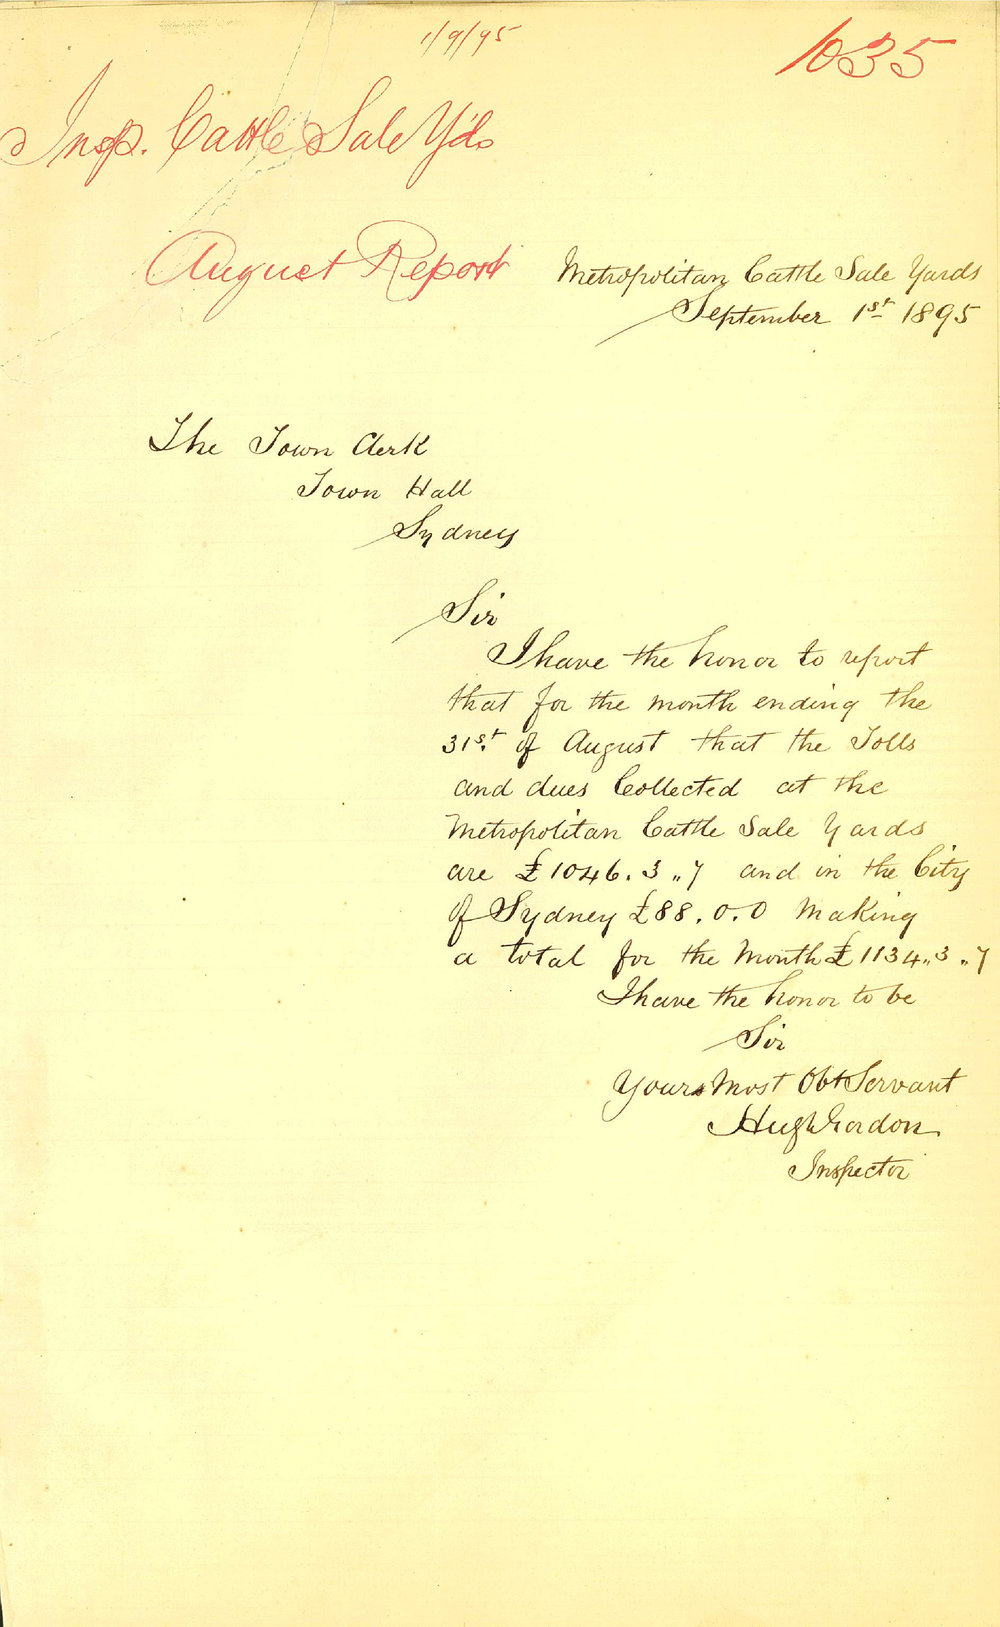 1/9/95
1035
Insp. Cattle Sale Yds
August Report
Metropolitan Cattle Sale Yards
September 1st 1895
The Town Clerk
Town Hall
Sydney
Sir
I have the honor to report
that for the month ending the
31st of August that the Tolls
and dues Collected at the
Metropolitan Cattle Sale Yards
are £1046.3..7 and in the City
of Sydney £88.0.0 Making
a total for the Month £1134..3..7
I have the honor to be
Sir
Yours Most Obt Servant
Hugh Gordon
Inspector